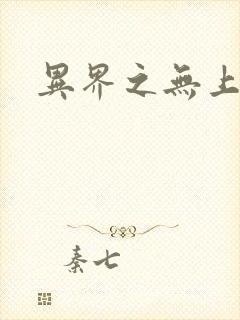 異界之無上
秦七